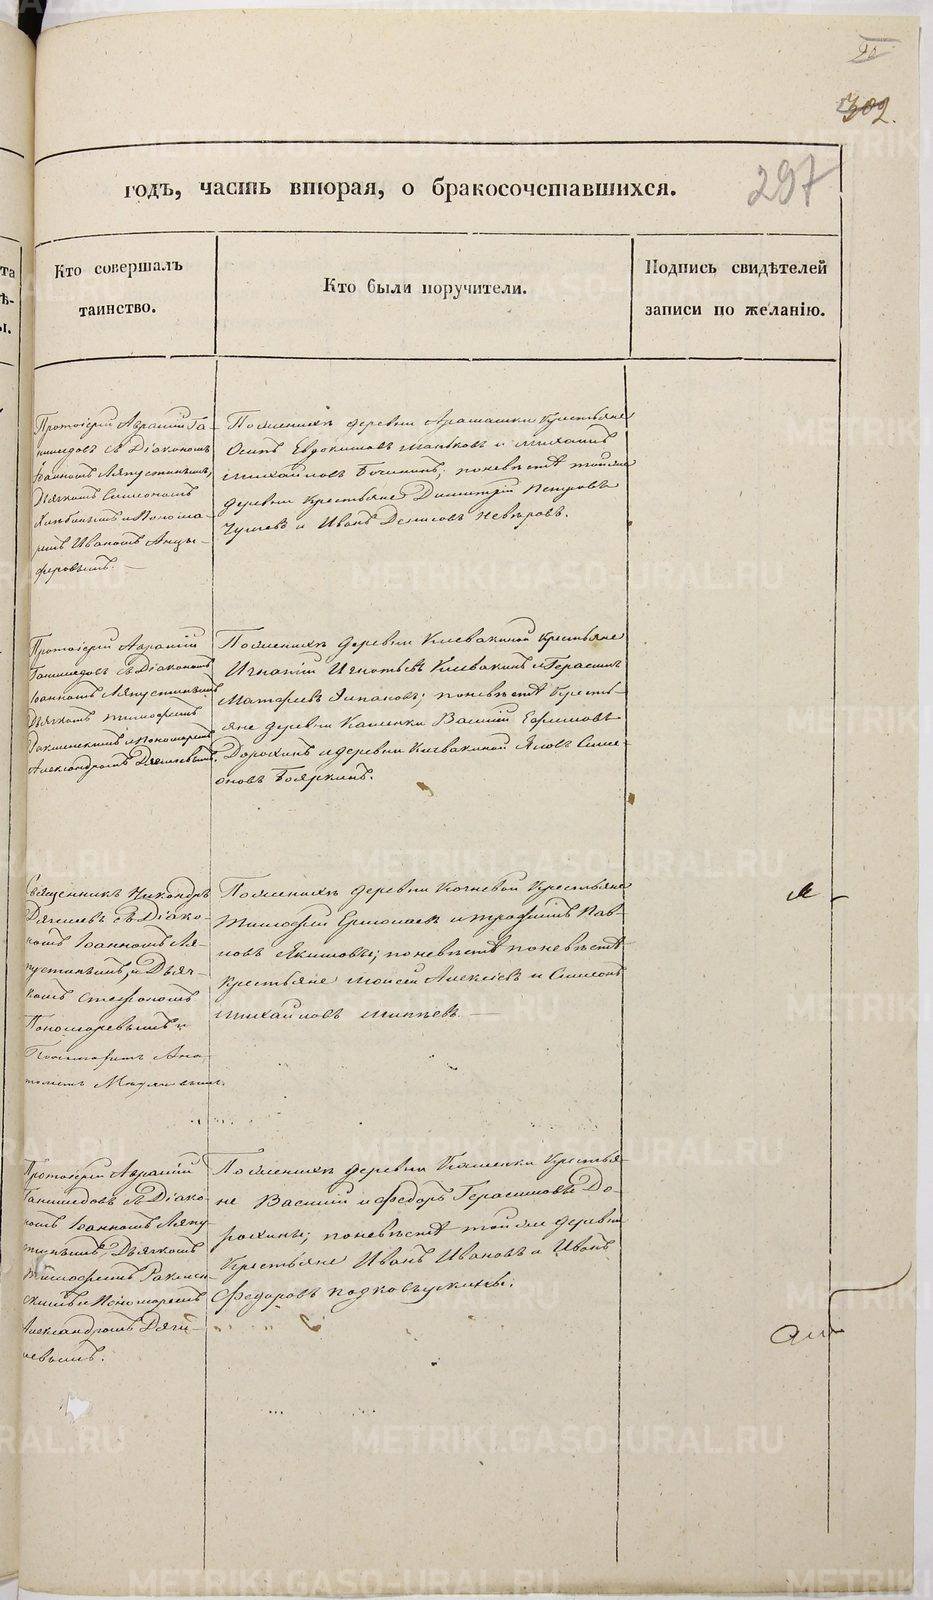 302.
297
годъ, часть вторая, о бракосочетавшихся.
Кто совершалъ
таинство.
Кто были поручители.
Подпись свидѣтелей
записи по желанію.
Протоіерей Авраамій Га-
съ Діакономъ
Іоанномъ Ляпустинымъ,
Дьячкомъ Симеономъ
и Понома-
ремъ Иваномъ Анцы-
феровымъ.
По женихѣ деревни крестьяне
Осипъ Евдокимовъ и Михаилъ
Михайловъ по невѣстѣ той же
деревни крестьяне Димитрій Петровъ
и Иванъ Денисовъ Невѣровъ.
Протоіерей Авраамій
съ Діакономъ
Іоанномъ Ляпустинымъ
Дьячкомъ Тимофеемъ
и Пономаремъ
Александромъ Дягилевымъ.
По женихѣ деревни Клевакиной крестьяне
Игнатій Игнатьевъ Клевакинъ и Герасимъ
Матфеевъ по невѣстѣ кресть-
яне деревни Каменки Василій Ефимовъ
Дорохинъ и деревни Клевакиной Яковъ Симе-
оновъ Бояркинъ.
Священникъ Никандръ
Дягилевъ съ Діако-
номъ Іоанномъ Ля-
пустинымъ, и Дьяч-
комъ Стефаномъ
Пономаревымъ и
По женихѣ деревни Кочневой крестьяне
Тимофей Ермолаевъ и Трофимъ Пав-
ловъ Якимовы; по невѣстѣ по невѣстѣ
крестьяне Моисей Алексѣевъ и Симеонъ
Михайловъ
Протоіерей Авраамій
съ Діако-
номъ Іоанномъ Ляпу-
стинымъ, Дьячкомъ
Тимофеемъ
и Пономаремъ
Александромъ Дяги-
левымъ.
По женихѣ деревни Каменки крестья-
не Василій и Федоръ Герасимовы До-
рохины; по невѣстѣ той же деревни
крестьяне Иванъ Ивановъ и Иванъ
Федоровъ Подковыркины.
METRIKI.GASO-URAL.RU